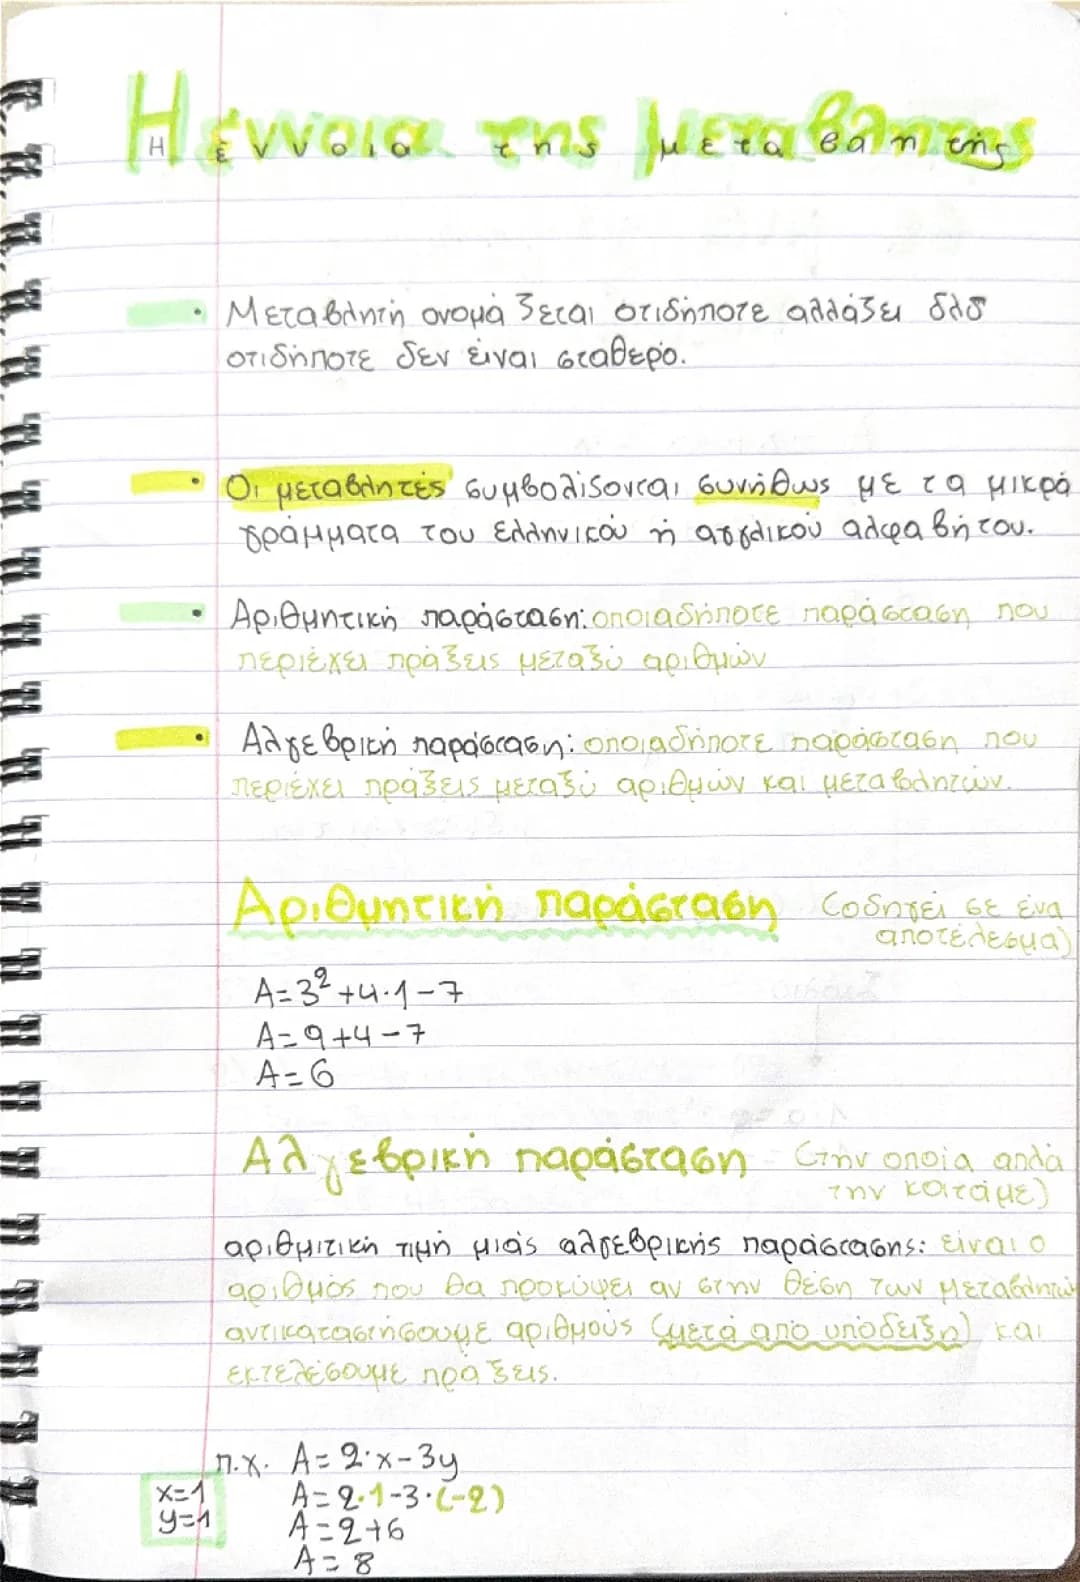 Η έννοια της μεταβλητής
Μεταβλητή ονομάζεται οτιδήποτε αλλάζει δλδ
οτιδήποτε δεν είναι σταθερό.
Οι μεταβλητές συμβολίζονται συνήθως με τα μικρά
γράμματα του ελληνικού ή αγγλικού αλφαβήτου.
Αριθμητική παράσταση: οποιαδήποτε παράσταση που
περιέχει πράξεις μεταξύ αριθμών
Αλγεβρική παράσταση: οποιαδήποτε παράσταση που
περιέχει πράξεις μεταξύ αριθμών και μεταβλητών.
Αριθμητική παράσταση (οδηγεί σε ένα
αποτέλεσμα)
Α=3²+4·1-7
Α=9+4-7
Α=6
Αλγεβρική παράσταση - (την οποία απλά
την κοιτάμε)
αριθμιτική τιμή μιάς αλγεβρικής παράστασης: είναι ο
αριθμός που θα προκύψει αν στην θέση των μεταβλητών
αντικαταστήσουμε αριθμούς (μετά από υπόδειξη) και
εκτελέσουμε πράξεις.
π.χ. Α=2·x-3y
x=1 Α=2·1-3·(-2)
y=1 Α=2+6
Α=8